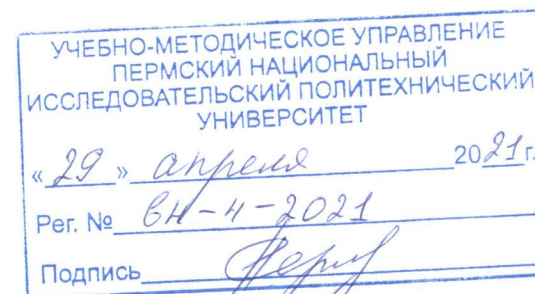 УЧЕБНО-МЕТОДИЧЕСКОЕ УПРАВЛЕНИЕ
ПЕРМСКИЙ НАЦИОНАЛЬНЫЙ
ИССЛЕДОВАТЕЛЬСКИЙ ПОЛИТЕХНИЧЕСКИЙ
УНИВЕРСИТЕТ
«29» апреля 2021г.
Рег. № вн-4-2021
Подпись